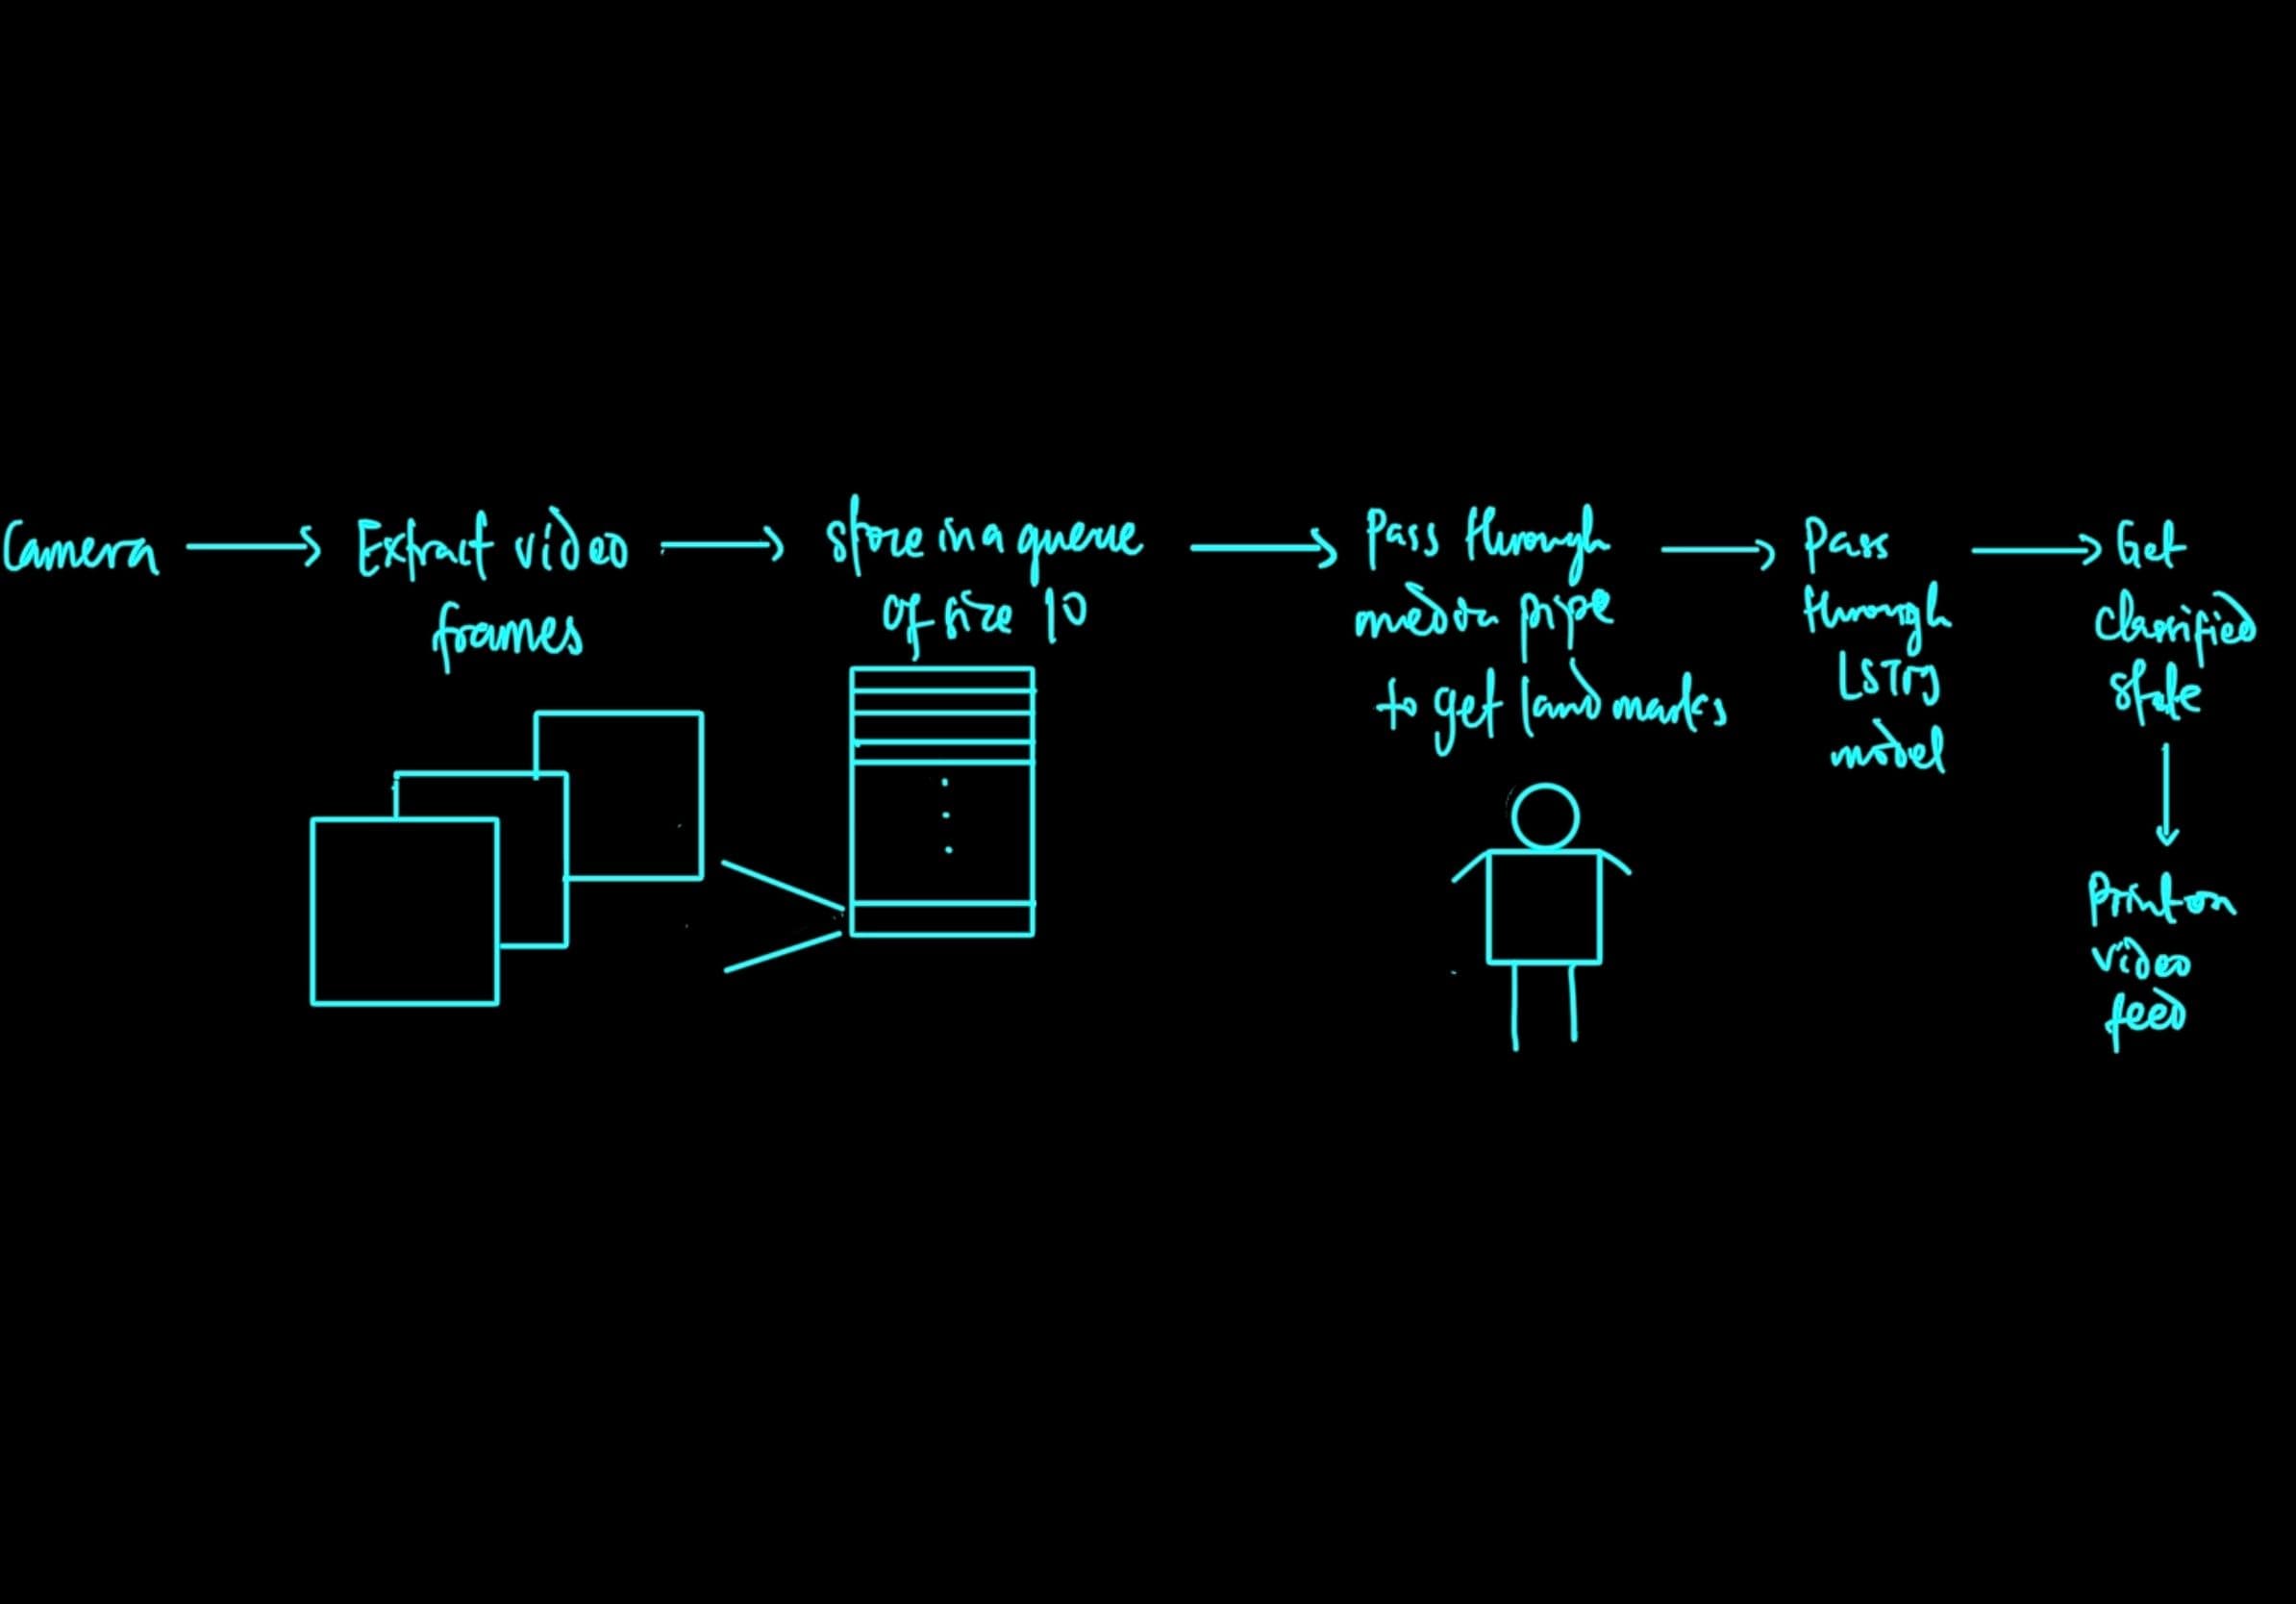 Camera
Extract video
frames
store in a queue
of size 10
Pass through
media pipe
to get landmarks
Pass
through
LSTM
model
Get
classified
state
Print on
video
feed